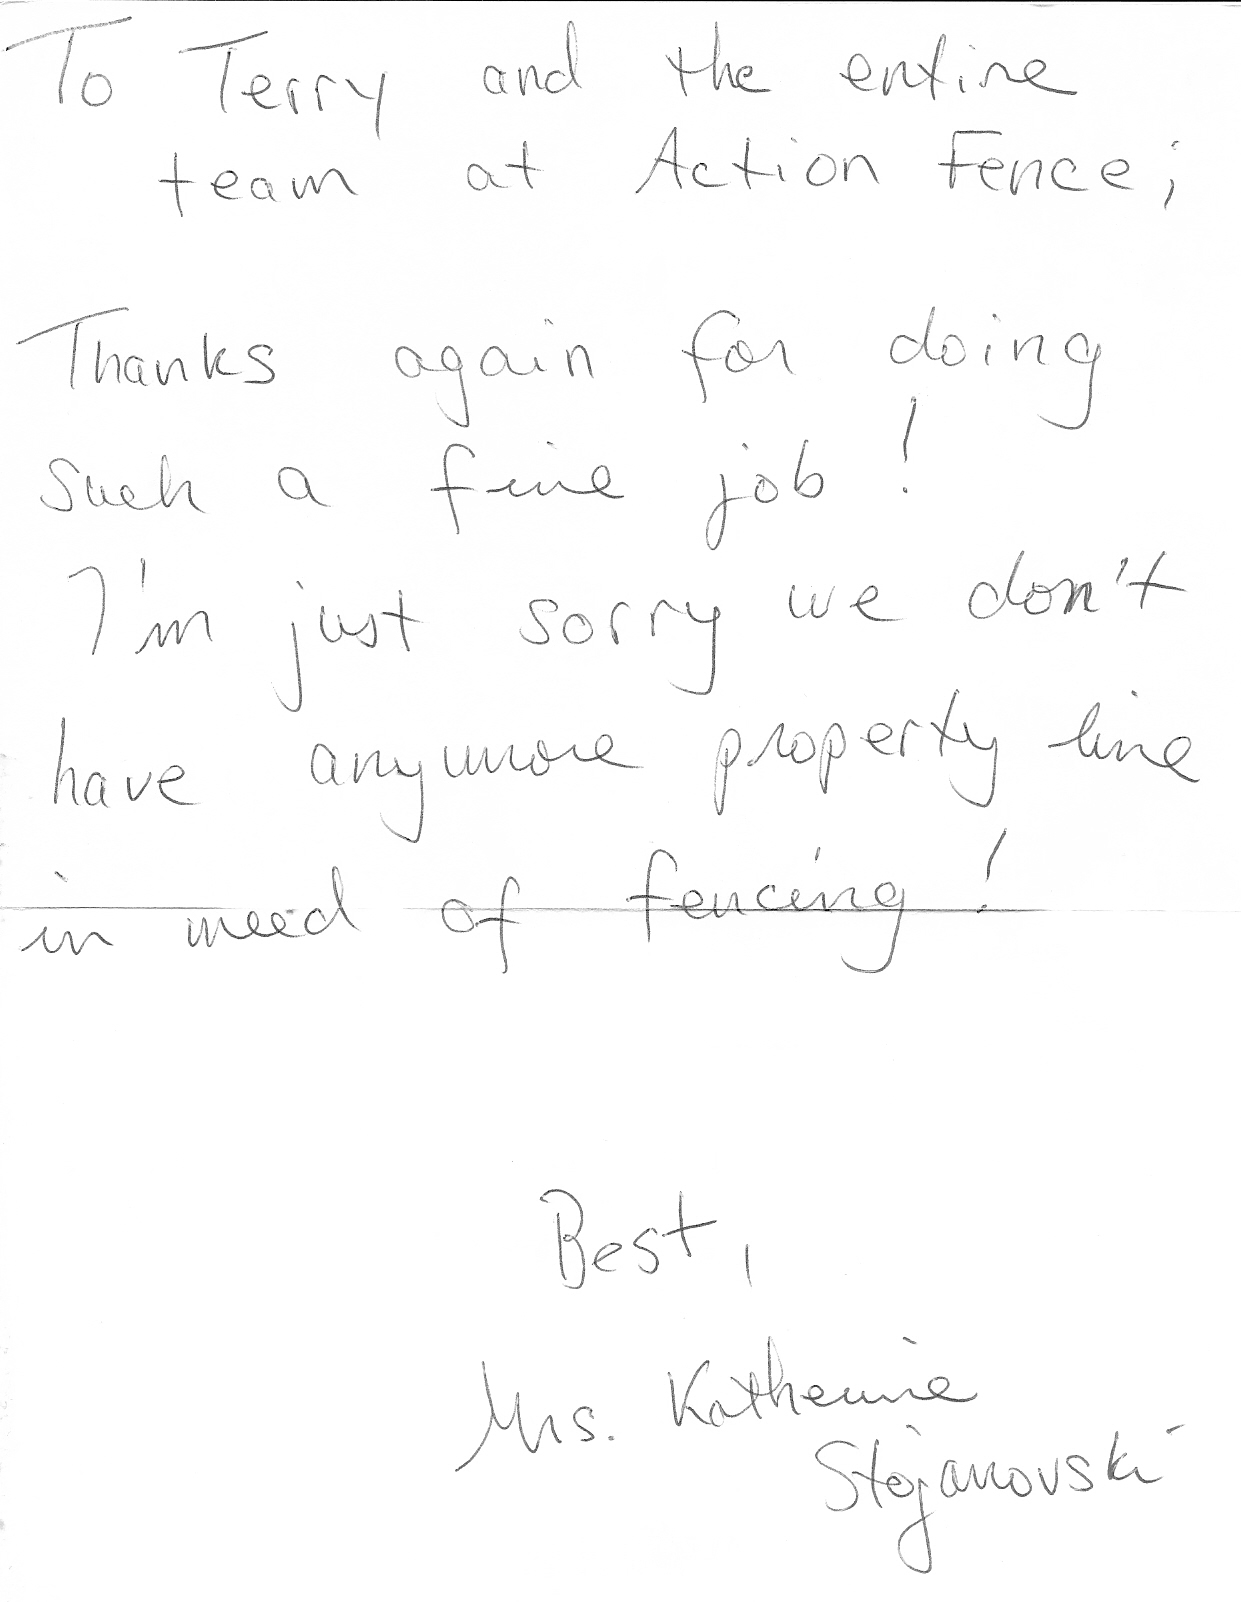 To Terry and the entire
team at Action Fence;
Thanks again for doing
such a fine job!
I'm just sorry we don't
have anymore property line
in need of fencing!
Best,
Mrs. Katherine
Stojanovski